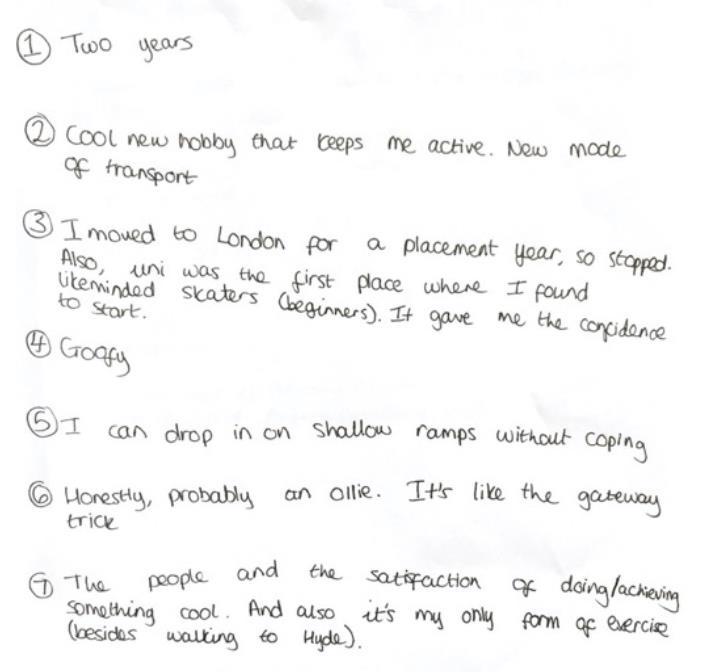 ① Two years
② Cool new hobby that keeps me active. New mode
of transport
③ I moved to London for a placement year, so stopped.
Also, uni was the first place where I found
likeminded skaters (beginners). It gave me the confidence
to start.
④ Goofy
⑤ I can drop in on shallow ramps without coping
⑥ Honestly, probably an ollie. It's like the gateway
trick
⑦ The people and the satisfaction of doing/achieving
something cool. And also it's my only form of exercise
(besides walking to Hyde).